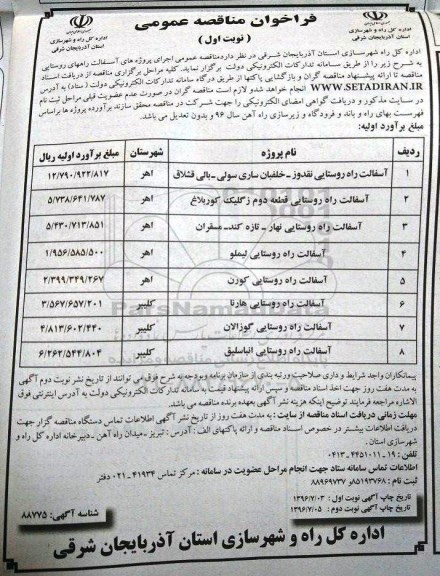 فراخوان مناقصه عمومی
( نوبت اول )
اداره کل راه و شهرسازی
استان آذربایجان شرقی
اداره کل راه و شهرسازی
استان آذربایجان شرقی
اداره کل راه شهرسازی استان آذربایجان شرقی در نظر دارد مناقصه عمومی اجرای پروژه های آسفالت راههای روستایی
به شرح زیر را از طریق سامانه تدارکات الکترونیکی دولت برگزار نماید. کلیه مراحل برگزاری مناقصه از دریافت اسناد
مناقصه تا ارائه پیشنهاد مناقصه گران و بازگشایی پاکتها از طریق درگاه سامانه تدارکات الکترونیکی دولت ( ستاد) به آدرس
WWW.SETADIRAN.IR انجام خواهد شد و لازم است مناقصه گران در صورت عدم عضویت قبلی مراحل ثبت نام
در سایت مذکور و دریافت گواهی امضای الکترونیکی را جهت شرکت در مناقصه محقق سازند برآورده پروژه ها براساس
فهرست بهای راه و باند و فرودگاه و زیرسازی راه آهن سال ۹۶ و بدون تعدیل می باشد.
مبلغ برآورد اولیه:
ردیف نام پروژه شهرستان مبلغ برآورد اولیه ریال
۱ آسفالت راه روستایی نقدوز ـ خلفیان ساری سولی ـ بالی قشلاق اهر ۱۲/۷۹۰/۹۲۲/۸۱۷
۲ آسفالت راه روستایی قطعه دوم زگلیک کوربلاغ اهر ۵/۷۳۸/۶۴۱/۷۸۷
۳ آسفالت راه روستایی نهار ـ تازه کند ـ مسقران اهر ۵/۴۳۰/۷۱۳/۸۵۱
۴ آسفالت راه روستایی لیملو اهر ۱/۹۵۶/۵۸۵/۵۰۰
۵ آسفالت راه روستایی کورن اهر ۲/۳۹۹/۳۴۹/۲۶۷
۶ آسفالت راه روستایی هارنا کلیبر ۳/۵۶۷/۶۵۷/۲۰۱
۷ آسفالت راه روستایی گوزالان کلیبر ۴/۸۱۳/۶۰۲/۴۴۰
۸ آسفالت راه روستایی انباستیق کلیبر ۶/۲۶۲/۵۴۴/۸۰۴
پیمانکاران واجد شرایط و دارای صلاحیت و رتبه بندی از سازمان برنامه و بودجه به شرح فوق می توانند از تاریخ نشر نوبت دوم آگهی
به مدت هفت روز جهت اخذ اسناد مناقصه و سپس ارائه پیشنهاد قیمت به سامانه تدارکات الکترونیکی دولت به آدرس اینترنتی فوق
الاشاره مراجعه فرمایند توضیح اینکه هزینه نشر آگهی بعهده برنده مناقصه می باشد.
مهلت زمانی دریافت اسناد مناقصه از سایت : به مدت هفت روز از تاریخ نشر آگهی اطلاعات تماس دستگاه مناقصه گزار جهت
دریافت اطلاعات بیشتر در خصوص اسناد مناقصه و ارائه پاکتهای الف : آدرس : تبریز ـ میدان راه آهن ـ دبیرخانه اداره کل راه و
شهرسازی استان .
تلفن : ۱۹ ـ ۴۴۵۱۰۱۱ ـ ۰۴۱۳
اطلاعات تماس سامانه ستاد جهت انجام مراحل عضویت در سامانه : مرکز تماس ۴۱۹۳۴ ـ ۰۲۱ دفتر
ثبت نام : ۸۵۱۹۳۷۶۸ و ۸۸۹۶۹۷۳۷
تاریخ چاپ آگهی نوبت اول : ۱۳۹۶/۷/۰۳
تاریخ چاپ آگهی نوبت دوم : ۱۳۹۶/۷/۰۵
شناسه آگهی: ۸۸۷۷۵
اداره کل راه و شهرسازی استان آذربایجان شرقی
ParsNamadData